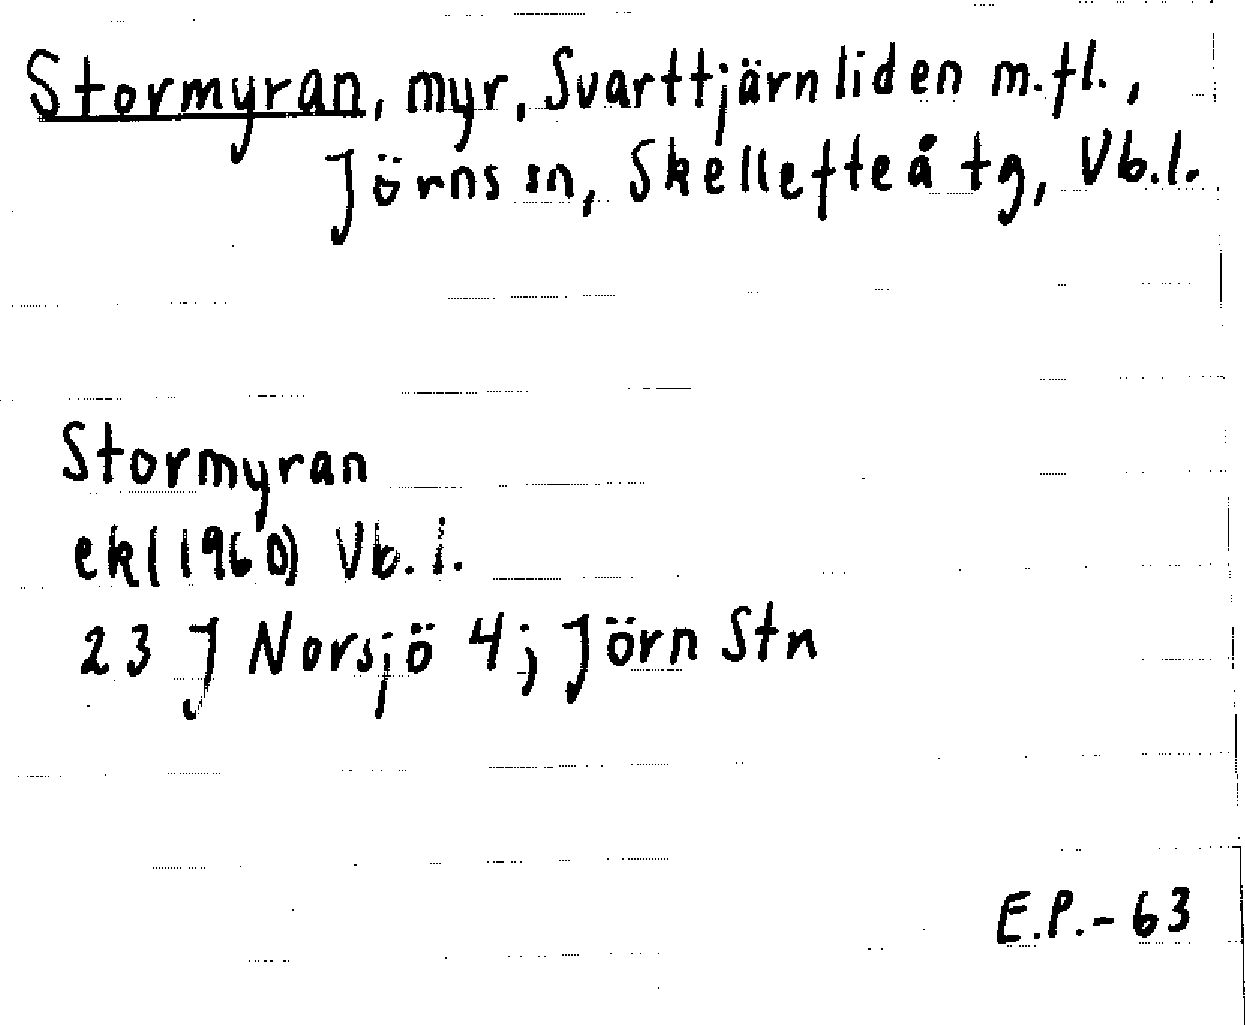 Stormyran, myr, Svarttjärnliden m.fl.,
Jörns sn, Skellefteå tg, Vb.l.
Stormyran
ek(1960) Vb.l.
23 J Norsjö 4; Jörn Stn
E.P.-63